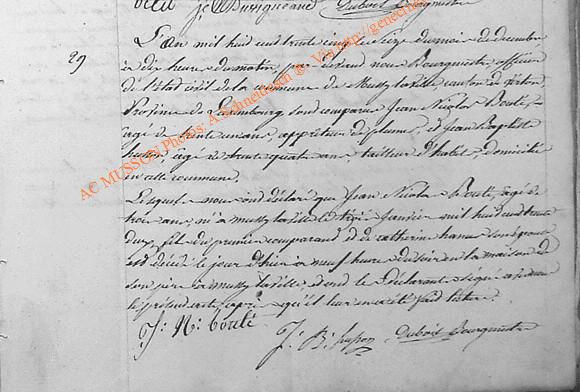 J: Duriqueaud Dubois Bourgmestre
29
L'an mil huit cent trente cinq, le seize du mois de decembre
à dix heure du matin, par devant nous Bourgmestre, officier
de l'état civil de la commune de Mussy la ville canton de Virton,
Province de Luxembourg sont comparus Jean Nicolas Boulé,
agé de trente un ans, appretteur de plumes, et Jean Baptiste
husson, agé de trente quatre ans tailleur d'habit, domiciliés
en cette commune,
Lesquels nous ont déclaré que Jean Nicolas Boulé, agé de
trois ans, né à mussy la ville le janvier mil huit cent trente
deux, fils du premier comparant et de catherine son épouse
est décédé le jour d'hier à neuf heure du soir en la maison de
son père à mussy la ville, et ont les déclarants signé avec nous
le présent acte, après qu'il leur en a été fait lecture.
J: N: boulé
J: B: husson Dubois Bourgmestre
AC MUSSON Photos: A.Schneidesch © - Via http://geneern